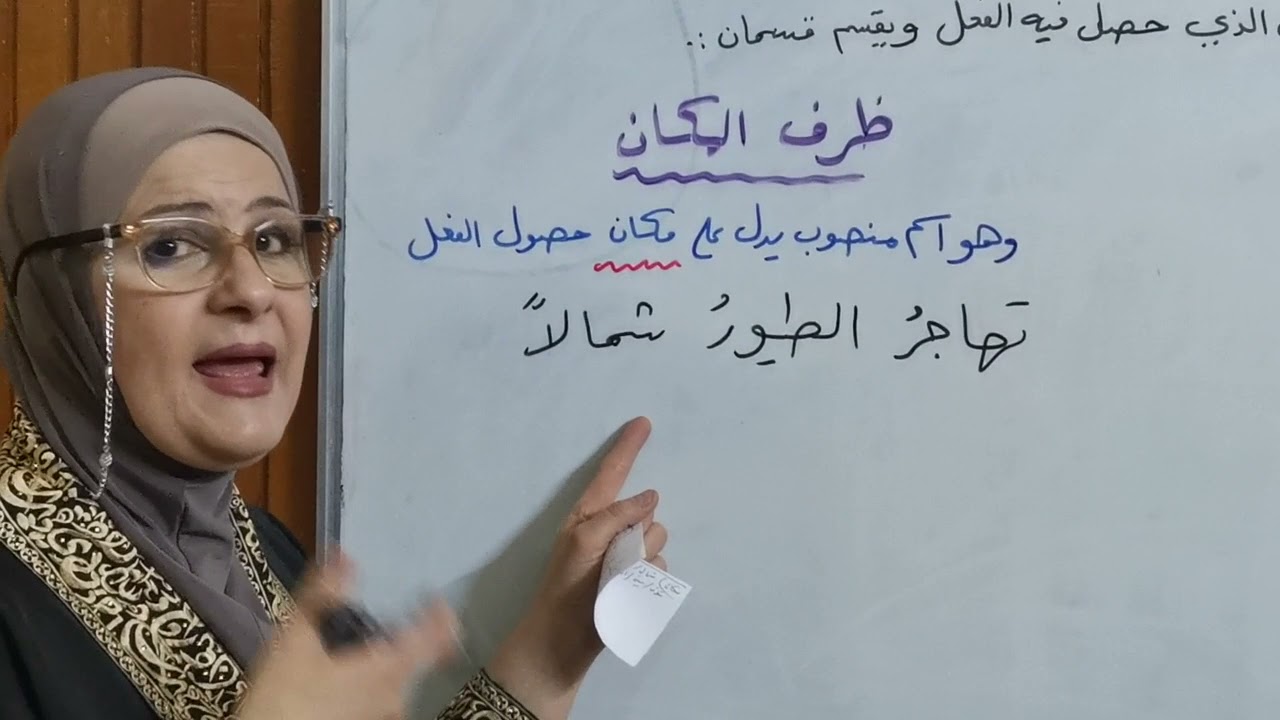 الذي حصل فيه الفعل ويقسم قسمان :.
ظرف المكان
وهو اسم منصوب يدل على مكان حصول الفعل
تهاجرُ الطيورُ شمالاً